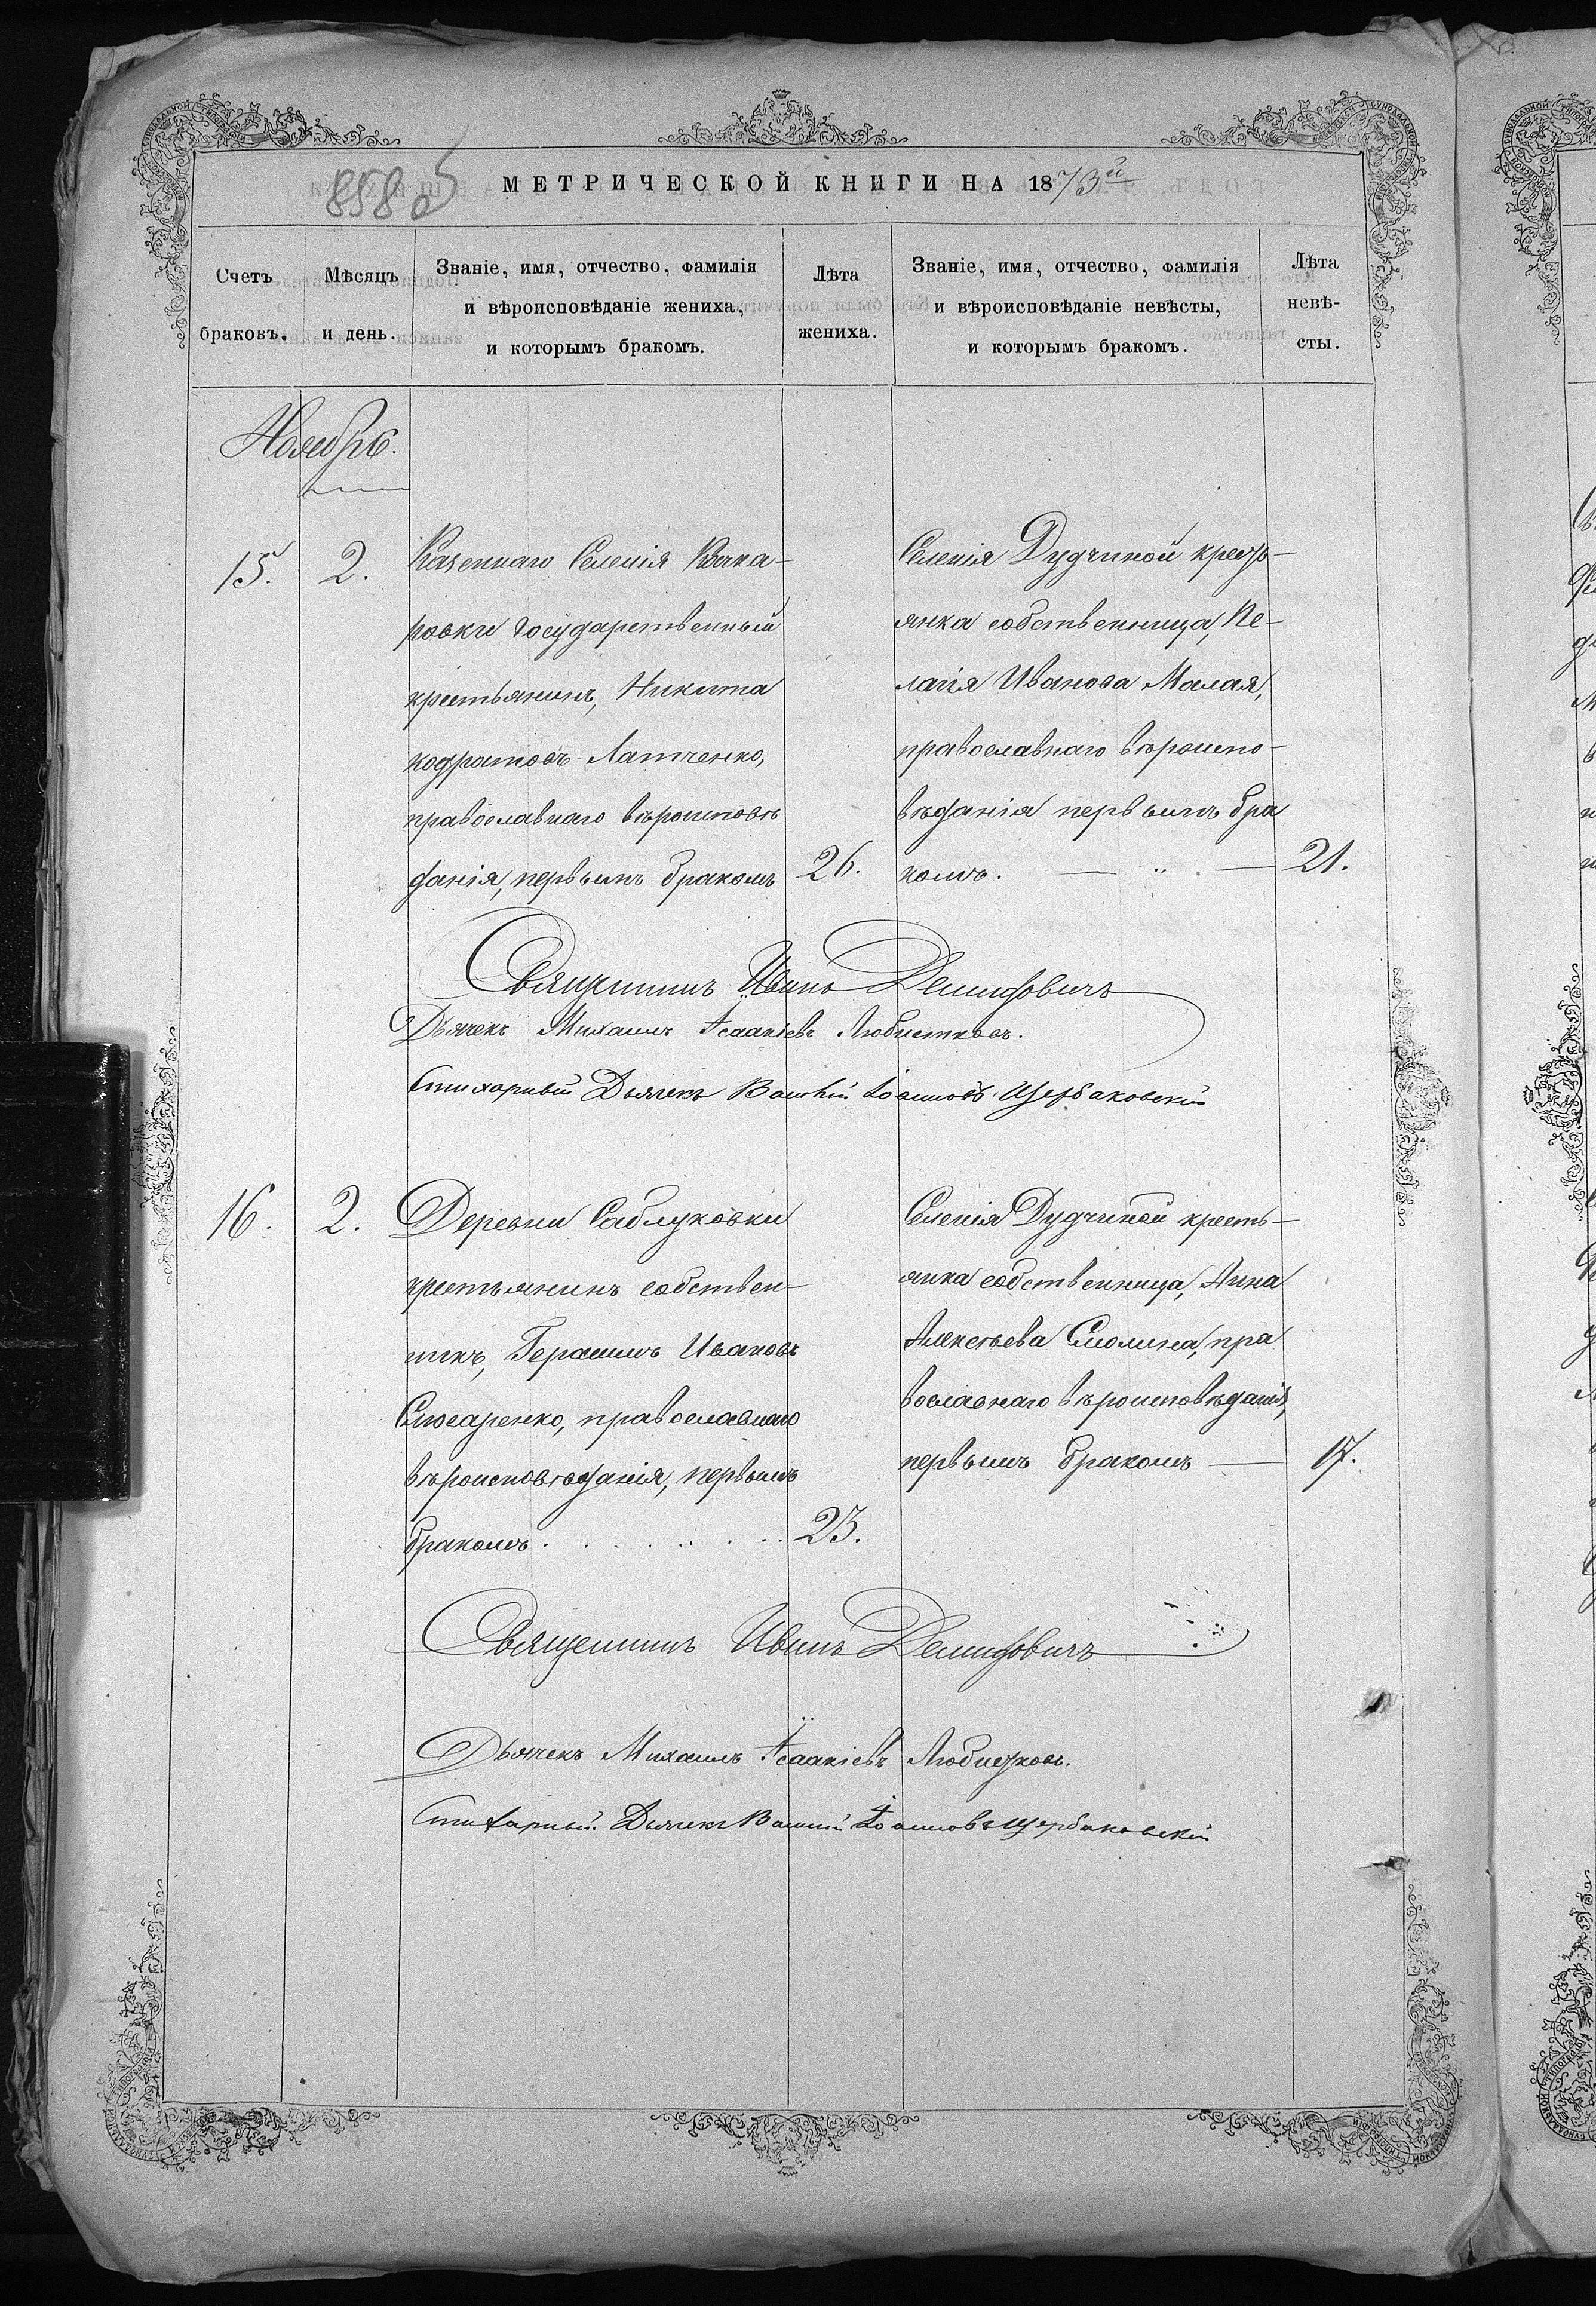 8580
МЕТРИЧЕСКОЙ КНИГИ НА 1873й
Счетъ браковъ.
Мѣсяцъ и день.
Званіе, имя, отчество, фамилія
и вѣроисповѣданіе жениха,
и которымъ бракомъ.
Лѣта
жениха.
Званіе, имя, отчество, фамилія
и вѣроисповѣданіе невѣсты,
и которымъ бракомъ.
Лѣта
невѣ-
сты.
Ноябрь.
15.
2.
Казеннаго Селенія Кача-
ровки государственный
крестьянинъ, Никита
Кодратовъ Латченко,
православнаго вѣроисповѣ
данія, первымъ бракомъ
26.
Селенія Дудчиной кресть-
янка собственница, Пе-
лагія Иванова Малая,
православнаго вѣроиспо-
вѣданія первымъ бра
комъ.
21.
Священникъ Иванъ Демидовичъ
Дьячекъ Михаилъ Ісаакіевъ Любистковъ.
Стихарный Дьячекъ Іоанновъ Щербаковскій
16.
2.
Деревни Саблуковки
крестьянинъ собствен-
никъ, Герасимъ Ивановъ
Слюсаренко, православнаго
вѣроисповѣданія, первымъ
бракомъ.
23.
Селенія Дудчиной кресть-
янка собственница, Анна
Алексѣева Смолина, пра
вославнаго вѣроисповѣданія,
первымъ бракомъ
17.
Священникъ Иванъ Демидовичъ
Дьячекъ Михаилъ Ісаакіевъ Любистковъ.
Стихарный Дьячекъ Іоанновъ Щербаковскій